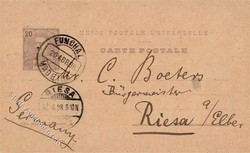 20
UNION POSTALE UNIVERSELLE
CARTE POSTALE
FUNCHAL
Mr. C. Boeters
Bürgermeister
RIESA
Riesa a/Elbe
Germany